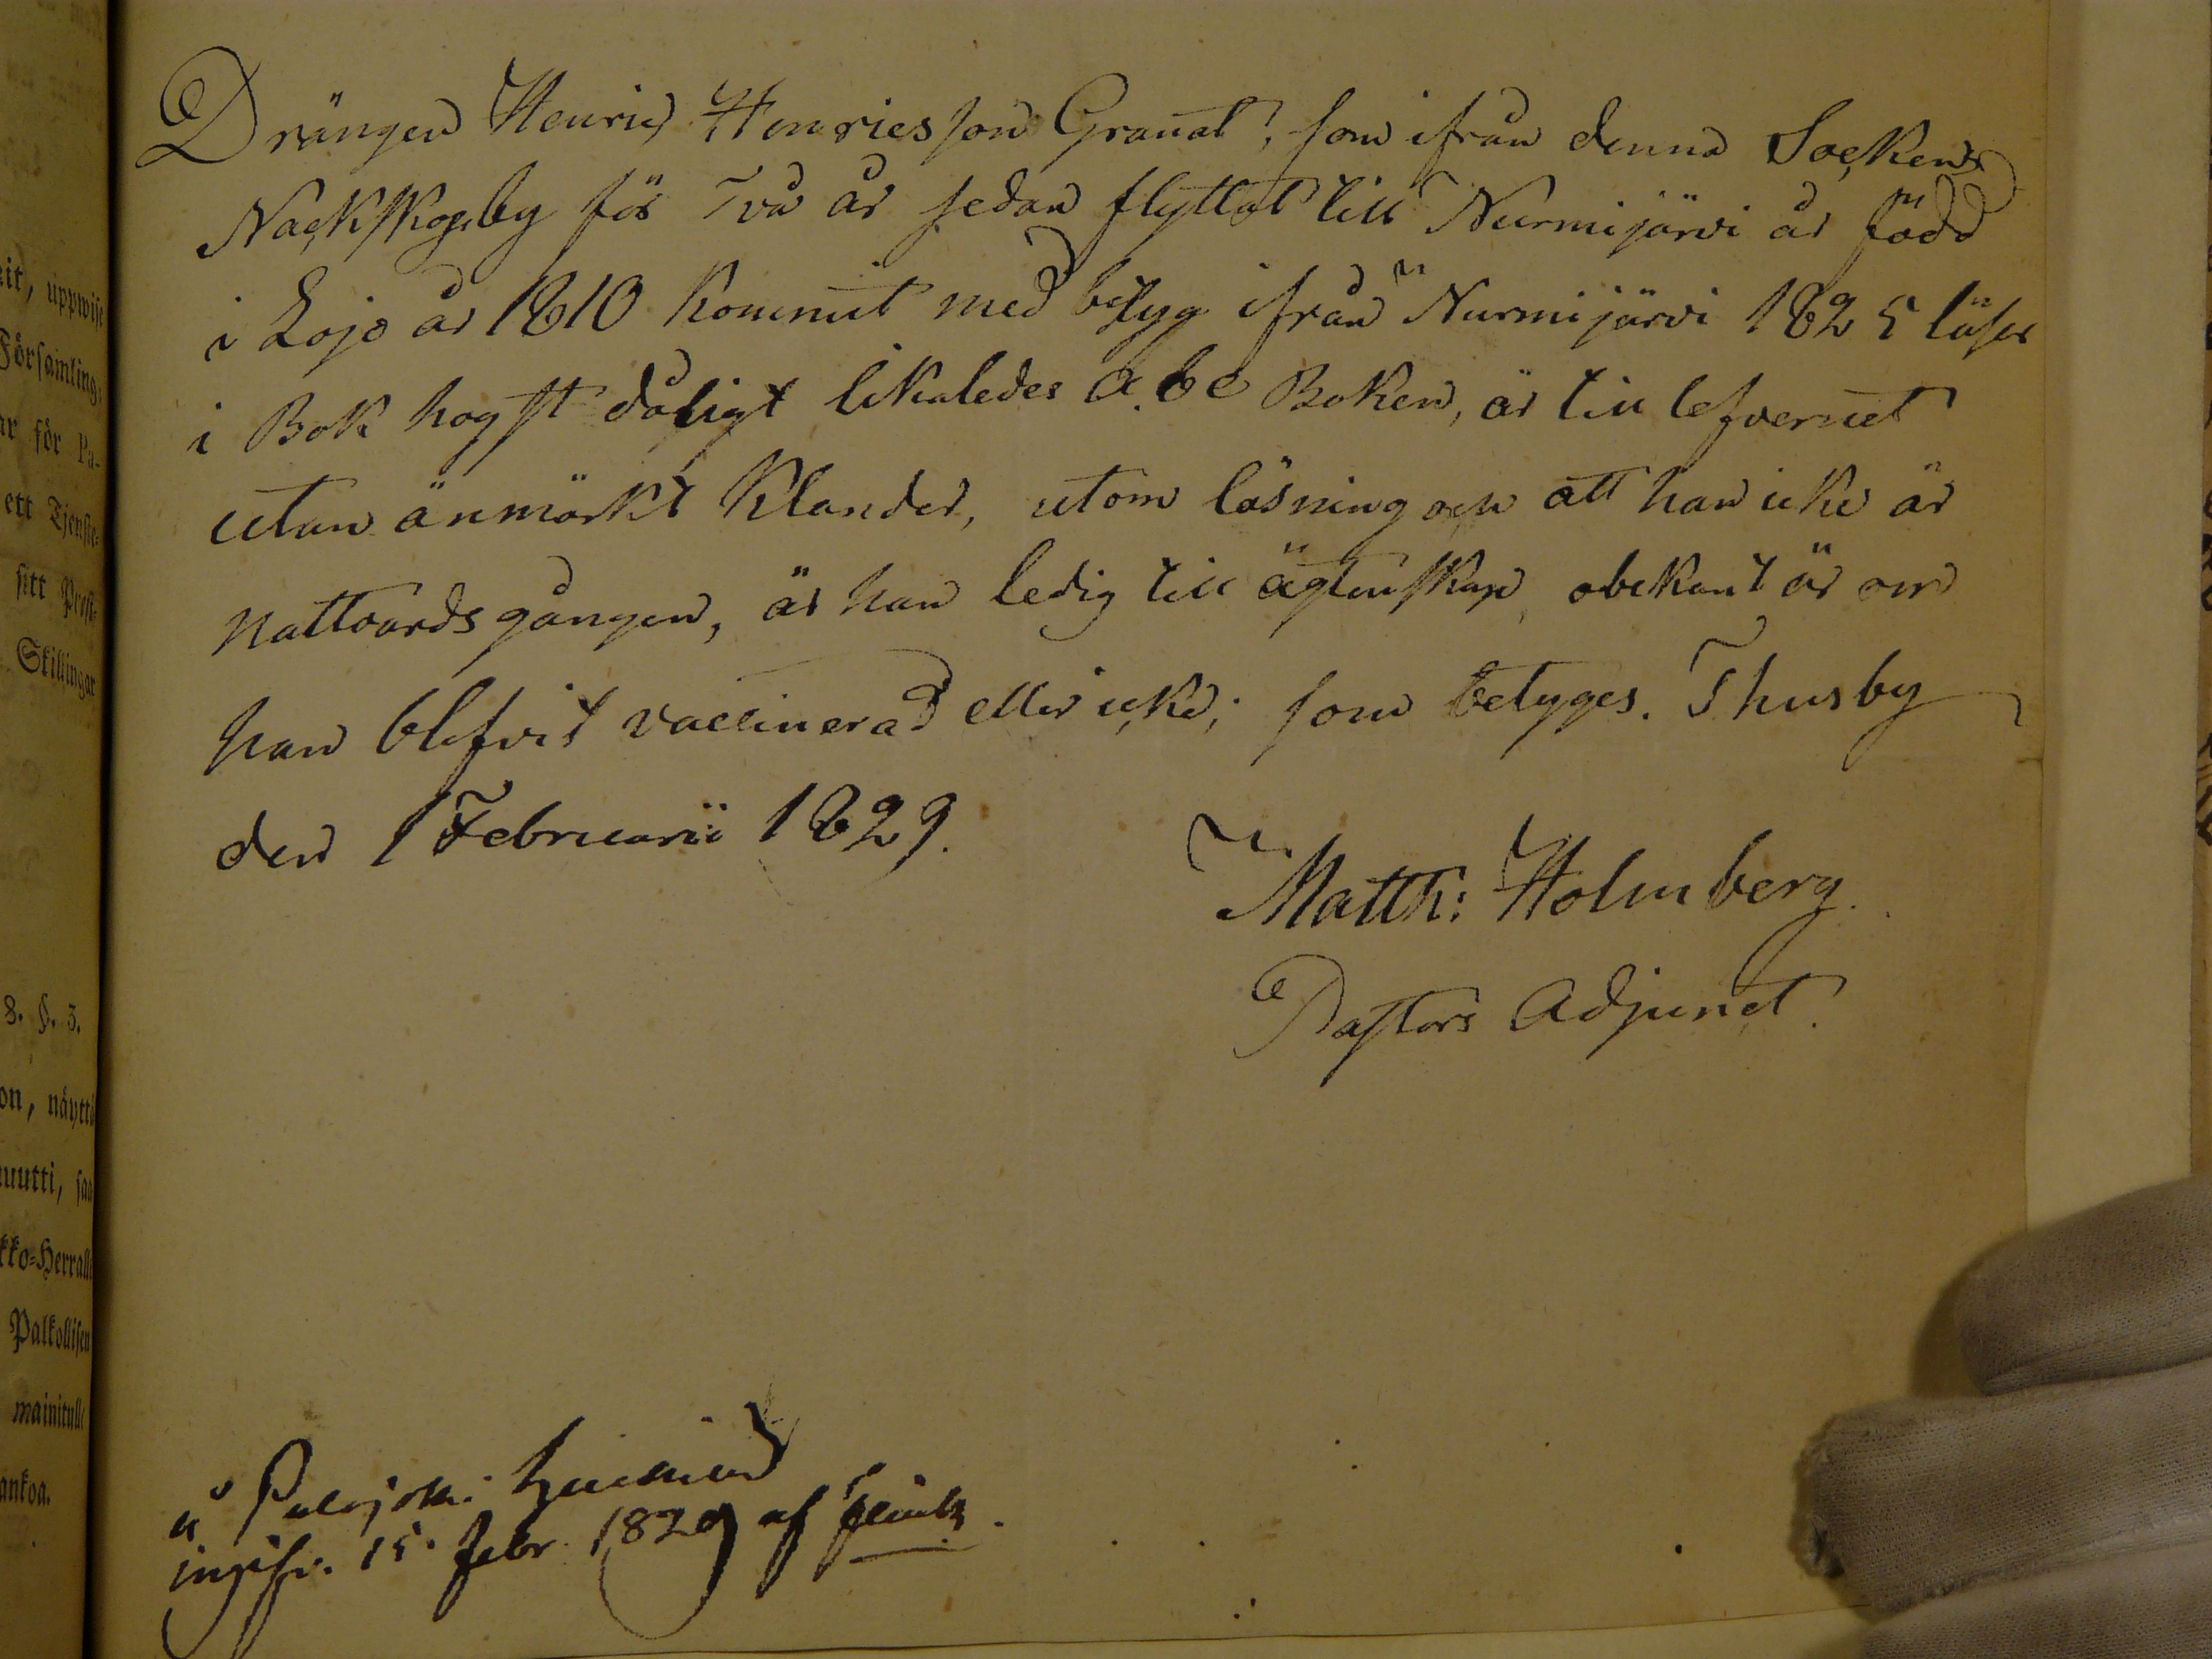 Drängen Henric Henricsson Granat, som ifrån denna Sockens
Nackskogsby för Två år sedan flyttat till Nurmijärvi är född
i Lojo år 1810 kommit med betyg ifrån Nurmijärvi 1825 läser
i Bok högst dåligt likaledes a.b.c Boken, är till lefvernet
utan anmärkt klander, utom läsning och att han icke är
nattvardsgången, är han ledig till ägtenskap, obekant är om
han blifvit vaccinerad eller icke; som betyges. Thusby
den 1 Februarii 1829.
Matth: Holmberg.
Pastors Adjunct.
å
15 febr. 1829 af
it, uppwise
Församling
ar för Pa-
ett Tjenste-
sitt Prest-
Skillingar
8. §. 3.
on, näyttä
muutti, saa
kko-Herralle
Palkollisen
mainitulle
ankoa.